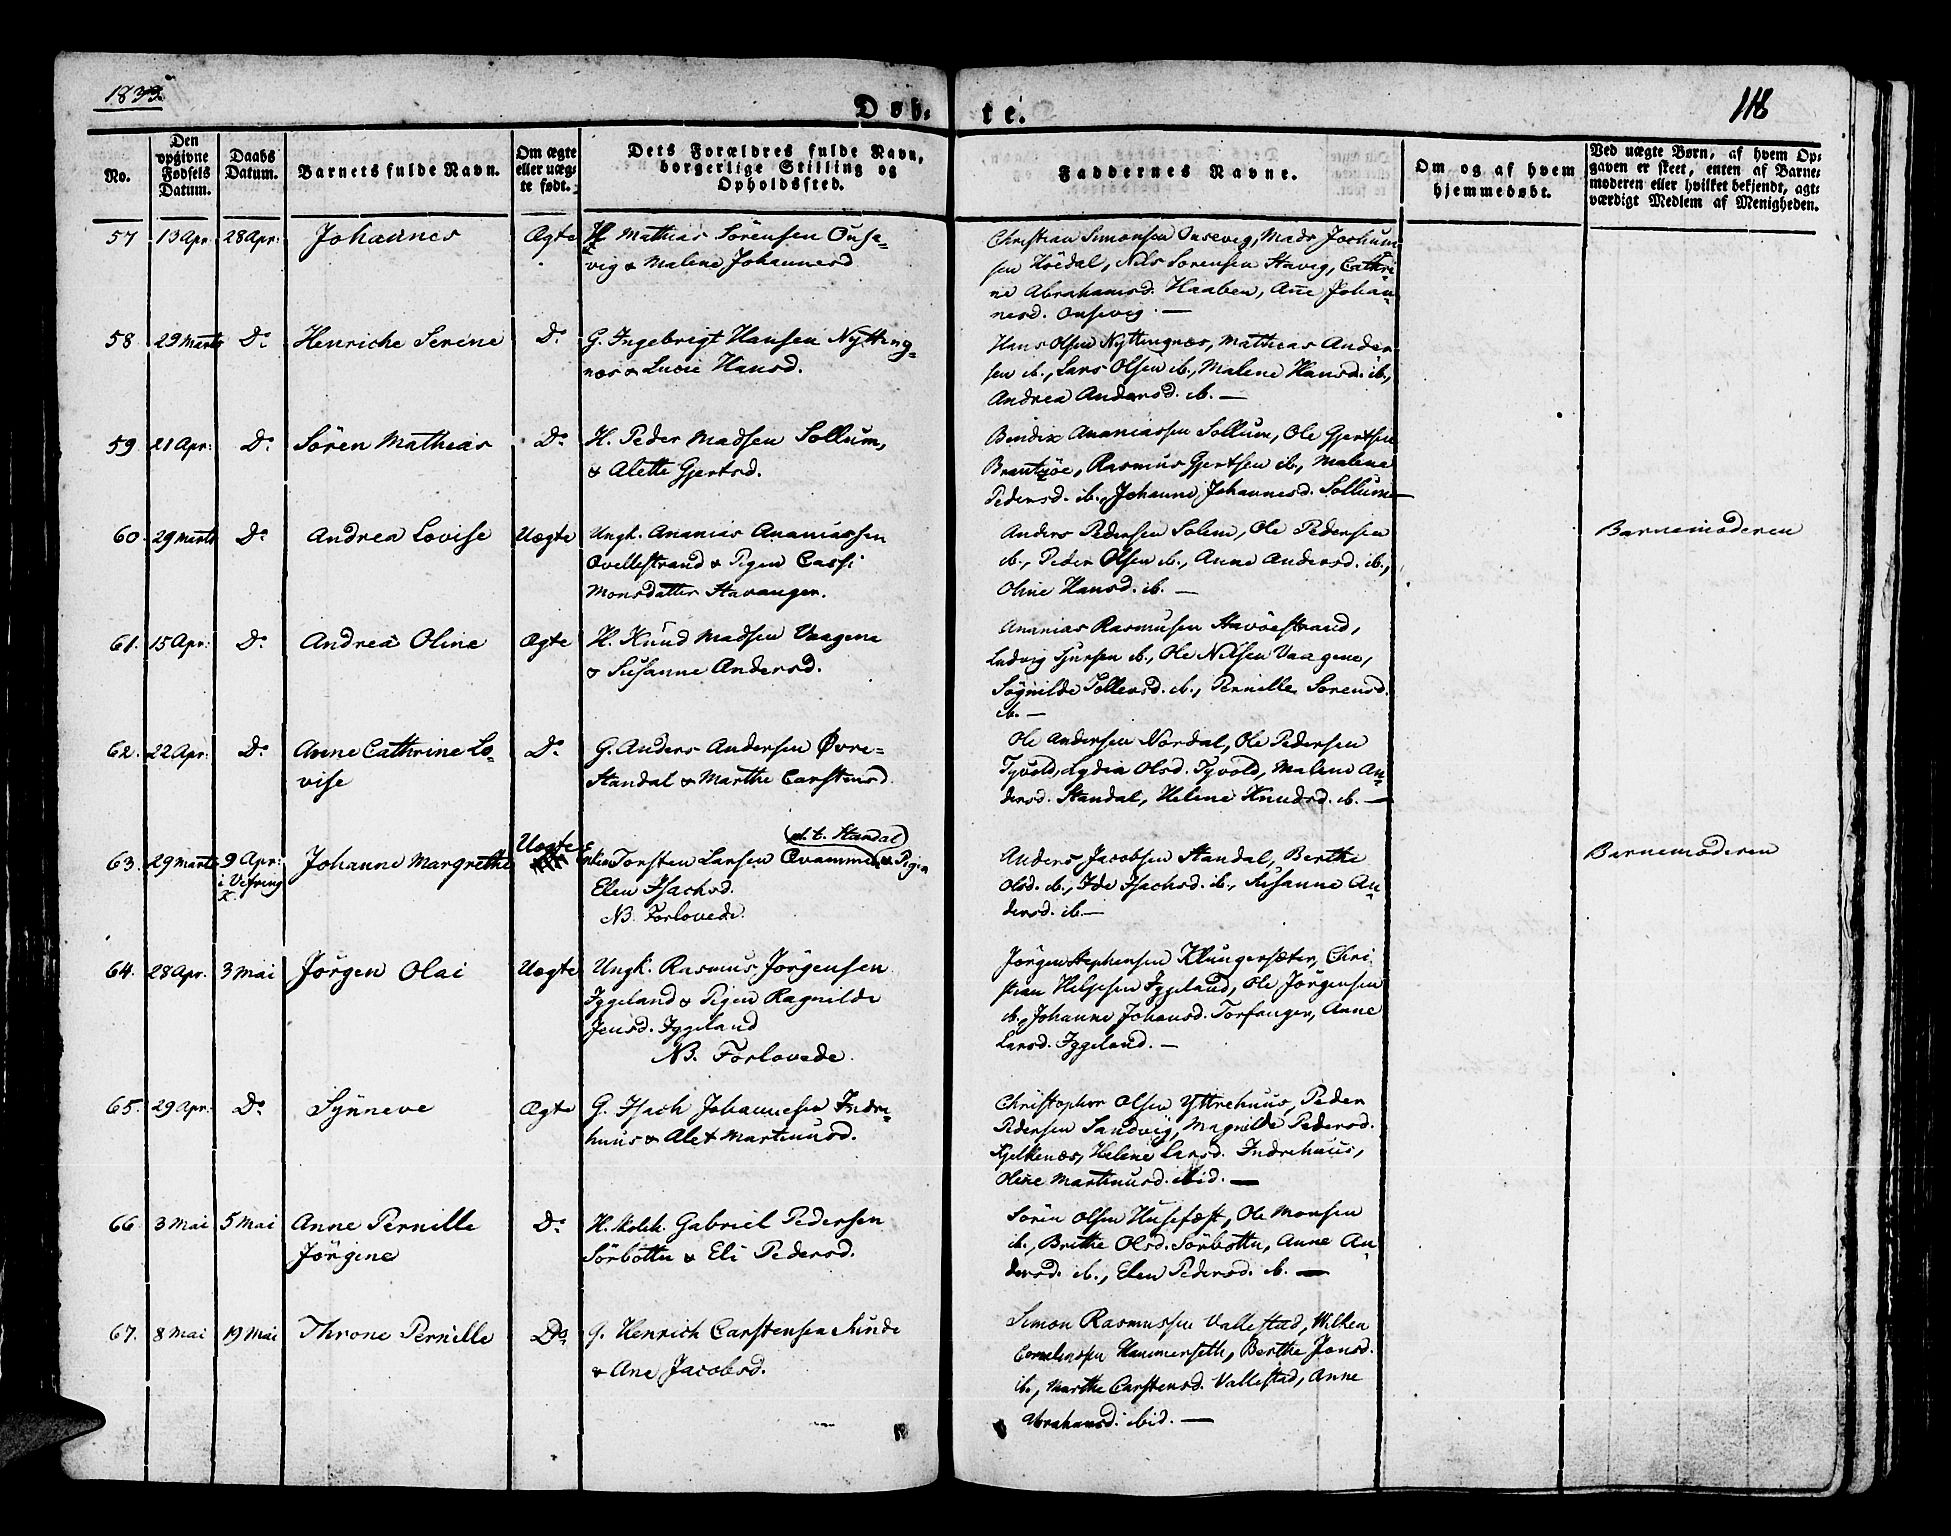 1833.
Døb- te.
118
No.
Den opgivne Fødsels Datum.
Daabs Datum.
Barnets fulde Navn.
Om ægte eller uægte født.
Dets Forældres fulde Navn, borgerlige Stilling og Opholdssted.
Faddernes Navne.
Om og af hvem hjemmedøbt.
Ved uægte Børn, af hvem Opgaven er skeet, enten af Barnemoderen eller hvilket bekjendt, agtværdigt Medlem af Menigheden.
57 13 Apr. 28 Apr: Johannes Ægte H. Mathias Sörensen Onse-
vig & Malene Johannesd
Christian Simonsen Onsevig, Mads Jochum
sen Höedal, Nils Sorensen Stavig, Cathri-
ne Abrahamsd. Haaben, Ane Johan-
nesd. Onsevig. —
58 29 Marts D. Henriche Serine D. G. Ingebrigt Hansen Nytting-
næs & Lucie Hansd.
Hans Olsen Nyttingnæs, Mathias Ander-
sen ib., Lars Olsen ib., Malene Hansd. ib.,
Andrea Andersd. ib. —
59 21 Apr: D. Sören Mathias D. H. Peder Madsen Sollum,
& Alette Gjertsd.
Bendix Ananiassen Sollum, Ole Gjertsen
Rasmus Gjertsen ib., Malene
Pedersd. ib., Johanne Johannesd. Sollum —
60. 29 Marts D. Andrea Lovise Uægte Ungk. Ananias Ananiassen
Qvellestrand & Pigen Cassi
Monsdatter Stavangen.
Anders Pedersen Solem, Ole Pedersen
ib., Peder Olsen ib., Anne Andersd. ib.,
Oline Hansd. ib. —
Barnemoderen
61. 15 Apr: D. Andrea Oline Ægte H. Knud Madsen Vaagene
& Susanne Andersd.
Ananias Rasmusen Stavöestrand,
Ludvig Sjursen ib., Ole Nilsen Vaagene,
Søgnilde Tollevsd. ib., Pernille Sorensd.
ib. —
62. 22 Apr: D. Anne Cathrine Lo-
vise D. G. Anders Andersen Øvre-
Standal & Marthe Carstensd.
Ole Andersen Nordal, Ole Pedersen
Tyvold, Lydia Olsd. Tyvold, Malene An-
dersd. Standal, Helene Knudsd. ib. —
63. 29 Marts 9 Apr:
i Vefring
K. Johanne Margrethe Uægte Enkem Torsten Larsen Qvamme (p. t. Standal) & Pigen
Elen Isachsd.
NB. Forlovede.
Anders Jacobsen Standal, Berthe
Olsd. ib., Ide Isachsd. ib., Susanne An-
dersd. ib. —
Barnemoderen
64. 28 Apr. 3 Mai Jörgen Olai Uægte Ungk. Rasmus Jörgensen
Iggeland & Pigen Ragnilde
Jensd. Iggeland
NB. Forlovede.
Jörgen Stephensen Klungersæter, Chri-
stian Helgesen Iggeland, Ole Jörgensen
ib., Johanne Johansd. Torfanger, Anne
Larsd. Iggeland. —
65. 29 Apr: D. Synneve Ægte G. Isach Johannesen Indre-
huus & Alet Martinusd.
Christopher Olsen Yttrehuus, Peder
Pedersen Sandvig, Magnilde Pedersd.
Gjelkenæs, Helene Larsd. Indrehuus,
Oline Martinusd. ibid. —
66. 3 Mai 5 Mai Anne Pernille
Jörgine D. H. Skoleh. Gabriel Pedersen
Sörbotten & Eli Pedersd.
Sören Olsen Husefæst, Ole Monsen
ib., Brithe Olsd. Sörbotten, Anne An-
dersd. ib., Elen Pedersd. ib. —
67. 8 Mai 19 Mai Throne Pernille D. G. Henrich Carstensen Sunde
& Ane Jacobsd.
Simon Rasmussen Vallestad, Wilken
Corneliussen Hammerseth, Berthe Jonsd.
ib., Marthe Carstensd. Vallestad, Anne
Abrahamsd. ibid. —